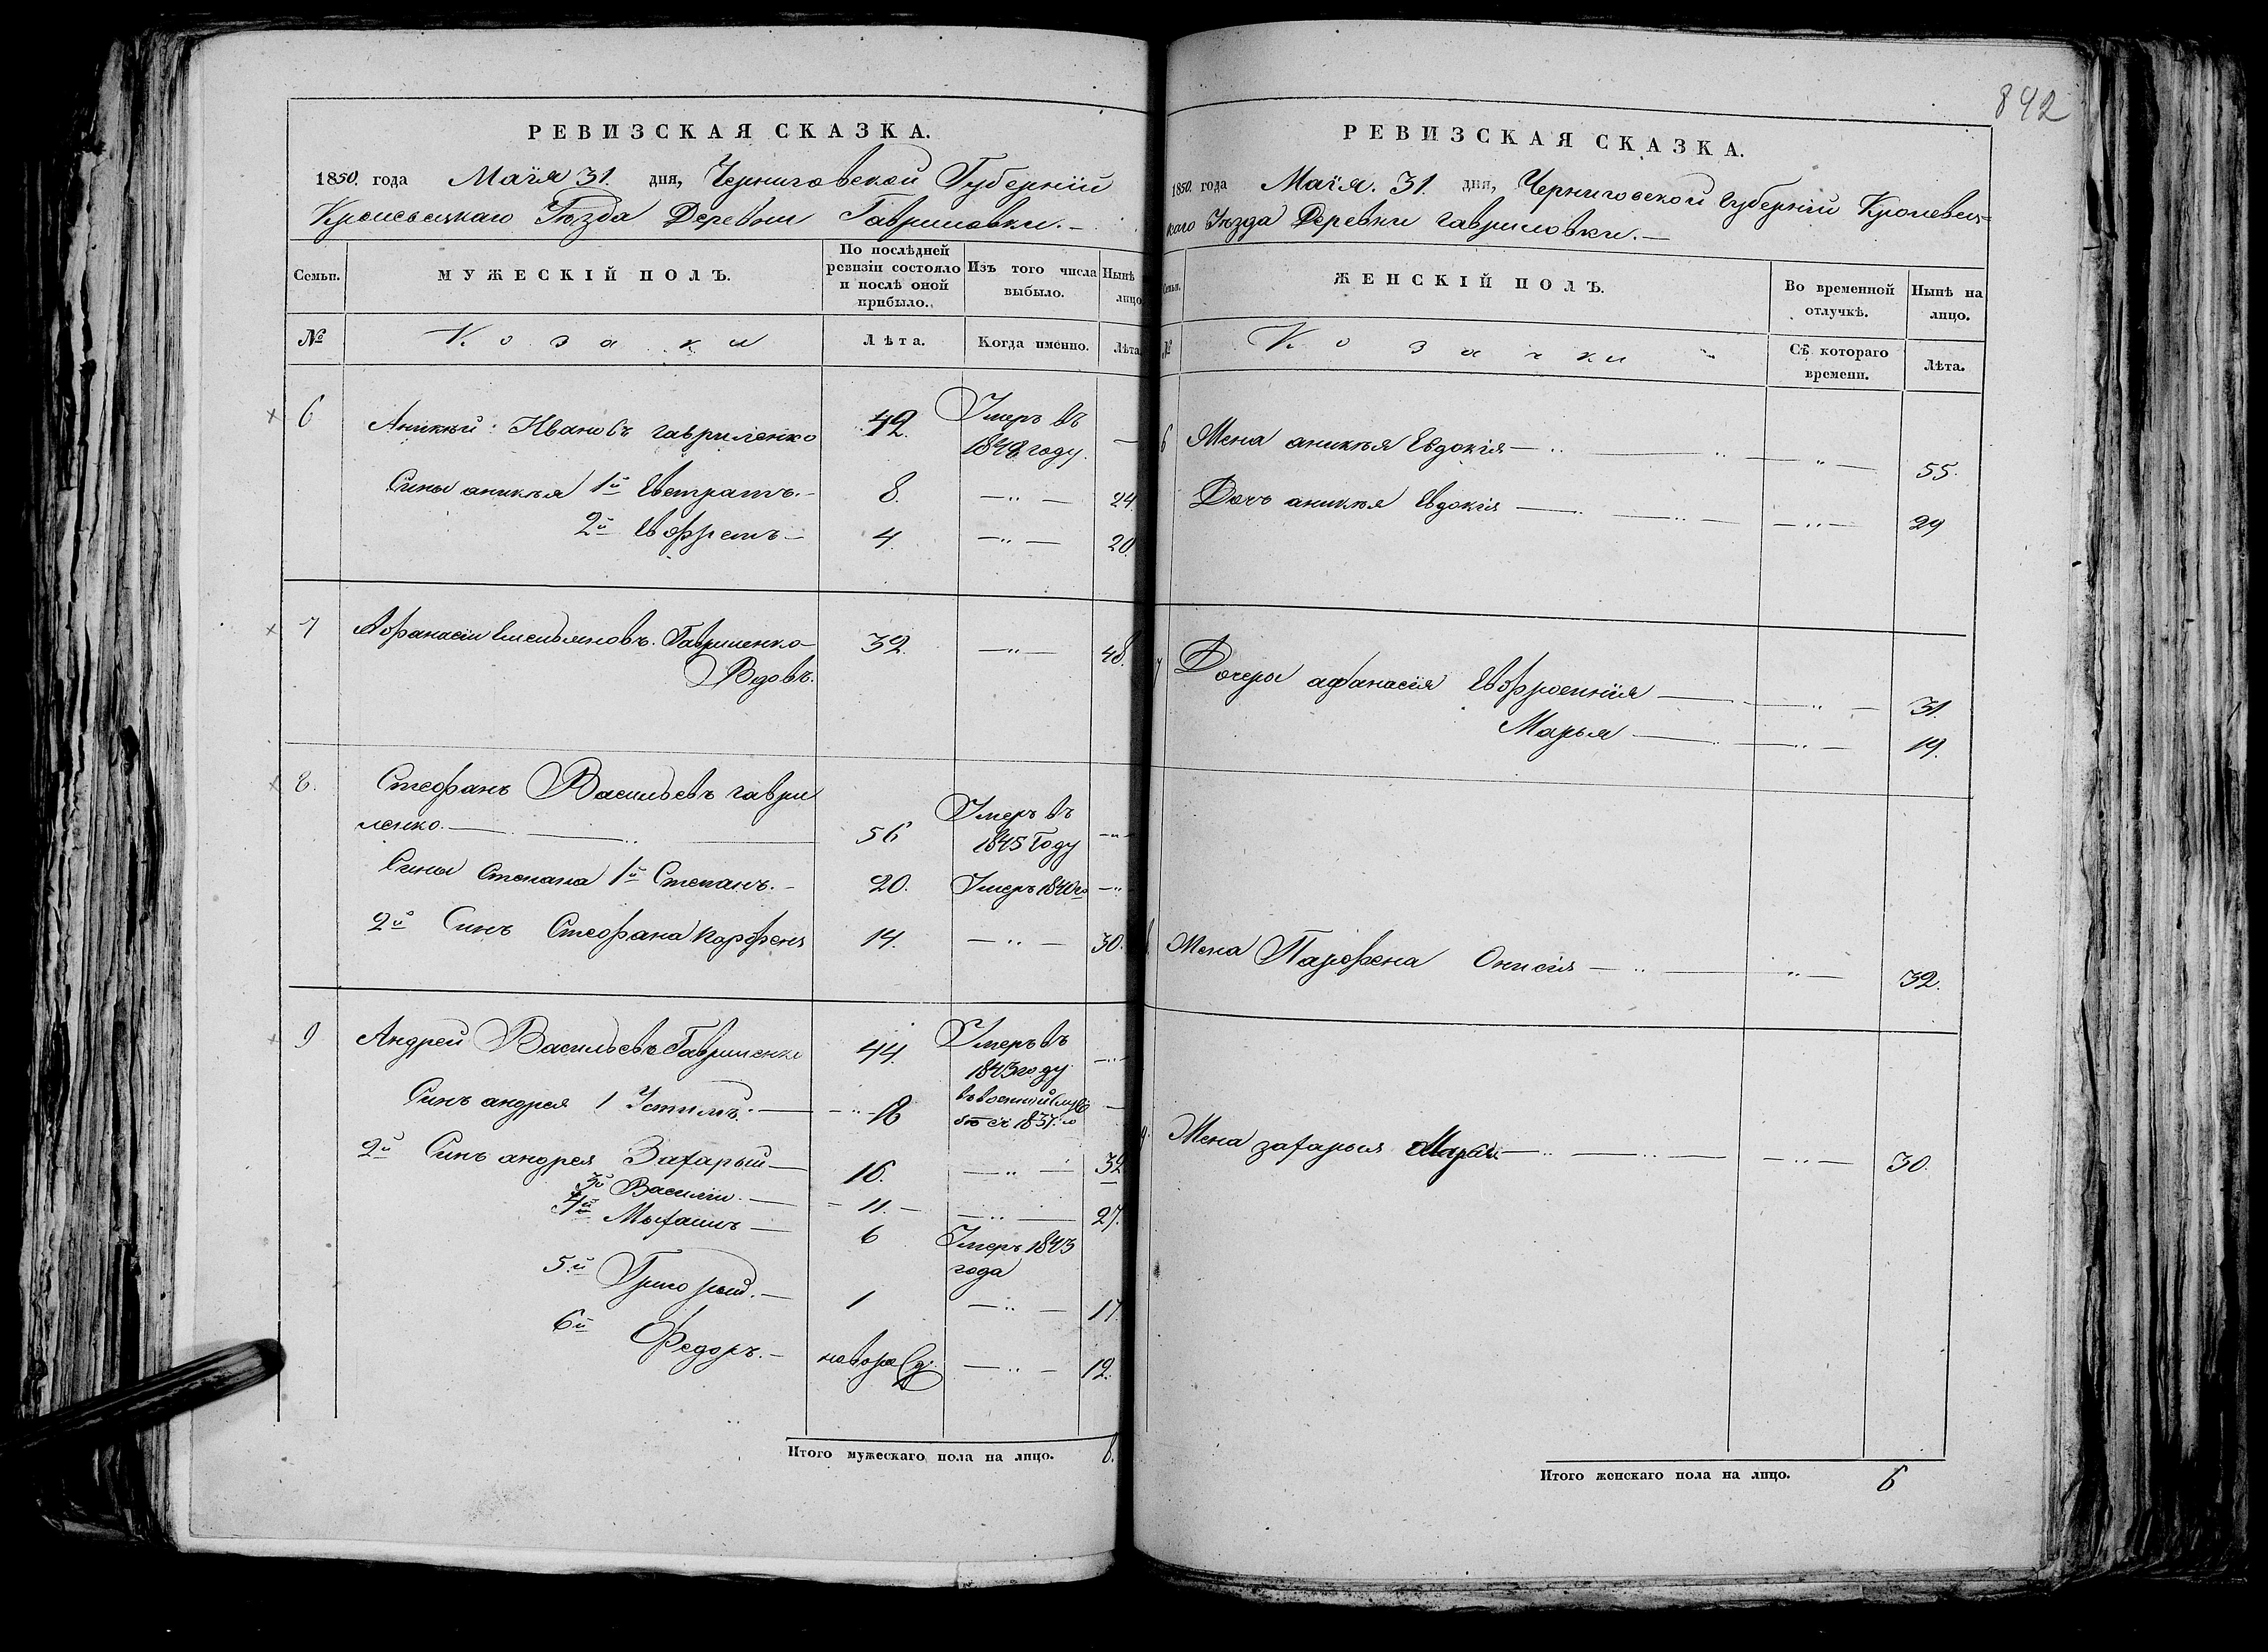 РЕВИЗСКАЯ СКАЗКА.
1850. года Маія 31. дня, Черниговской Губерніи
Кролевецкаго Уѣзда Деревни Гавриловки.
Семьи.
МУЖЕСКІЙ ПОЛЪ.
По послѣдней ревизіи состояло и послѣ оной прибыло.
Изъ того числа выбыло.
Нынѣ лицо
№
Козаки
Лѣта.
Когда именно.
Лѣта
6 Аникѣй Ивановъ гавриленко 42. Умеръ въ
1848 году.
Сины аникѣя 1й Евстратъ. 8. 24
2й Евфремъ 4. 20.
7 Афанасіи Емельяновъ. Гавриленко 32. 48.
Вдовъ.
8. Стефанъ Васильевъ гаври
ленко. 56 Умеръ въ
1845 Году
Сины Степана 1й Степанъ. 20. Умеръ 1840го
2й Синъ Стефана парфенъ 14. 30.
9 Андрей Васильевъ Гавриленко 44. Умеръ въ
1843 году.
Синъ андрея 1 Устимъ. 18 въ военной служ
бѣ съ 1837.го
2й Синъ андрея Захарый 16. 32
3й Василіи. 11. 27.
4й Мыхаилъ 6 Умеръ 1843
года
5.й Григорый. 1 17.
6й Федоръ. новорожд. 12.
Итого мужескаго пола на лицо. 8.
842
РЕВИЗСКАЯ СКАЗКА.
1850. года Маія. 31. дня, Черниговской Губерніи Кролевец=
каго Уѣзда Деревни гавриловки.
Семьи.
ЖЕНСКІЙ ПОЛЪ.
Во временной отлучкѣ.
Нынѣ на лицо.
№
Козачки
Съ котораго времени.
Лѣта.
6 Жена аникѣя Евдокія 55.
Дочъ аникѣя Евдокія 29
7 Дочеры афанасія Евфросинія 31.
Марья 19.
8. Жена Парфена Онисія 32.
9. Жена захарыя Марія 30.
Итого женскаго пола на лицо. 6